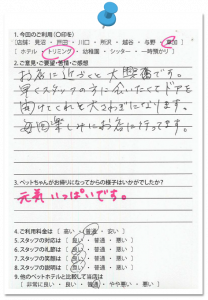 1.今回のご利用(○印を)
[店舗: 見沼 ・ 戸田 ・ 川口 ・ 所沢 ・ 越谷 ・ 与野 ・ 草加 ]
[ ホテル ・ トリミング ・ 幼稚園 ・ シッター ・ 一時預かり ]
2.ご意見・ご要望・苦情・ご感想
お店に近づくと大興奮です。
早くスタッフの方に会いたくてドアを
開けてくれと大さわぎになります。
毎回楽しみにお店に行ってます。
3.ペットちゃんがお帰りになってからの様子はいかがでしたか?
元気いっぱいです。
4.ご利用料金は [ 高い ・ 普通 ・ 安い ]
5.スタッフの対応は [ 良い ・ 普通 ・ 悪い ]
6.スタッフの礼節は [ 良い ・ 普通 ・ 悪い ]
7.スタッフの笑顔は [ 良い ・ 普通 ・ 悪い ]
8.スタッフの説明は [ 良い ・ 普通 ・ 悪い ]
9.他のペットホテルと比較して当店は
[ 非常に良い ・ 良い ・ 普通 ・ やや悪い ・ 悪い ]